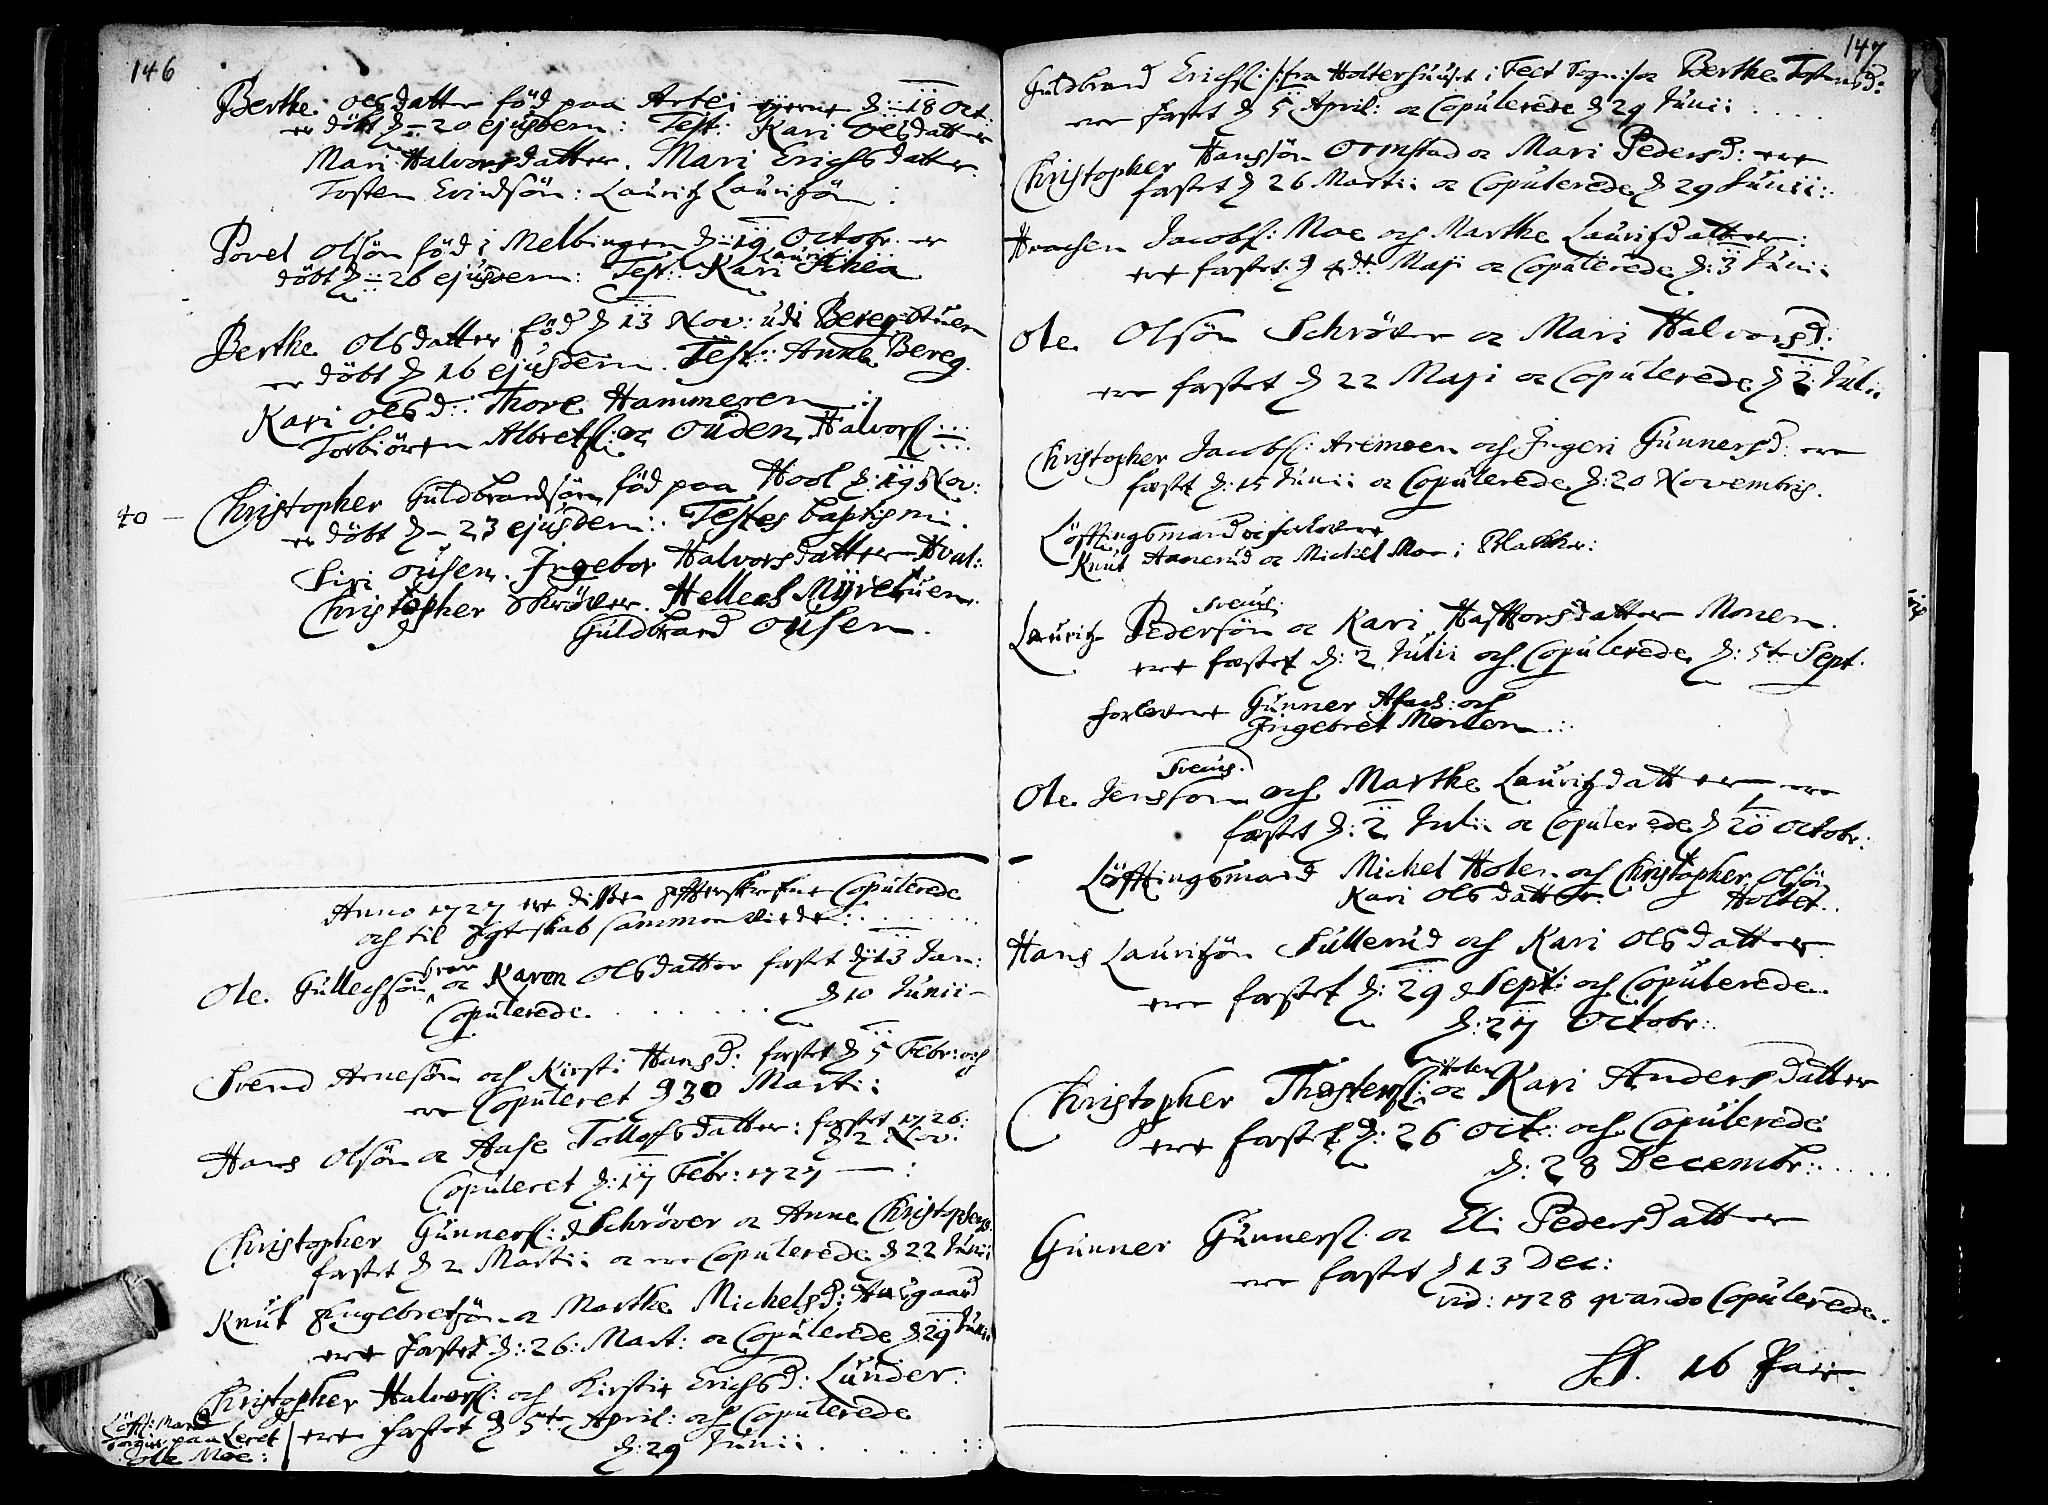 146
Berthe olsdatter föd paa Artei d: 18 Oct:
er döbt d 20 ejusdem: Test: Kari Olsdatter
Mari Halvorsdatter. Mari Erichsdatter.
Tosten Evindsön: Lauritz Lauritzön:
Povel Olsön föd i Melbingen d: 19 Octobr: er
döbt d 26 ejusdem: Test: Kari
Berthe Olsdatter föd d 13 Nov: udi Beregstuen
er döbt d 16 ejusdem. Test: Anne Bereg.
Kari Olsd: Thore Hammeren
Torbiören Albretss: oc Ouden Halvors:
40 — Christopher Guldbrandsön föd paa Hool d: 19 Nov:
er döbt d 23 ejusdem: Testes baptismi.
Siri Ousen. Ingebor Halvorsdatter
Christopher Skröver. Hellech Myrestuen.
Guldbrand Ousen.
Anno 1727 ere disse effterskrefne Copulerede
och til Egteskab sammenviede:
Ole Gullechsön oc Karen Olsdatter festet d 13 Jan:
Copulerede d 10 Junii
Svend Arnesön och Kirsti Hansd: festet d 5 Febr: och
ere Copuleret d 30 Martii
Hans Olsön oc Aase Tollofsdatter: festet 1726:
d 2 Nov:
Copuleret d: 17 Febr: 1727
Christopher Gunners: Schröver oc Anne Christophers
festet d 2 Martii oc ere Copulerede d 22 Junii
Knut Engebretsön oc Marthe Michelsd: Aasgaard
ere festet d: 26: Mart: oc Copulerede d: 29 Junii
Christopher Halvors: och Kirstie Erichsd: Lunder:
ere festet d 5te April: och Copulerede
d: 29 Junii
Löfft: Mand
paa Leret
Moe:
147
Guldbrand Erichs: fra Holtershuuset i Feet Sogn: oc Berthe Tostensd:
ere festet d 5 April: oc Copulerede d 29 Junii
Christopher Hanssön Ormstad oc Mari Pedersd: ere
festet d 26 Martii oc Copulerede d 29 Junii:
Jacobs: Moe och Marthe Lauritzdatter:
ere festet: d 4de Maji oc Copulerede d: 3 Junii
Ole Olsön Schröver oc Mari Halvorsd:
ere festet d 22 Maji oc Copulerede d 2 Juli:
Christopher Jacobs: Aremoen och Ingeri Gunnersd: ere
festet d: 15 Junii oc Copulerede d: 20 Novembris.
Löfftingsmand
Knut Hanerud oc Michel Moe i Blakker:
Lauritz Pedersön oc Kari Haffvorsdatter Monen.
ere festet d: 2 Julii och Copulerede d: 5te Sept.
forlovere Gunner och
Ingebret Monen
Ole Jenssön och Marthe Lauritzdatter ere
festet d: 2 Julii oc Copulerede d 20 Octobr:
Löfftingsmand Michel Holen och Christopher Olsön
Kari Olsdatter. Holtet.
Hans Lauritzön Sullerud och Kari Olsdatter
ere festet d: 29 Sept: och Copulerede
d: 27 Octobr:
Christopher Thostens: Holen oc Kari Andersdatter
ere festet d: 26 Oct: och Copulerede
d: 28 Decembr:
Gunner Gunners: oc Eli Pedersdatter
ere festet d 13 Dec:
vid: 1728 quando Copulerede.
16 Pair.